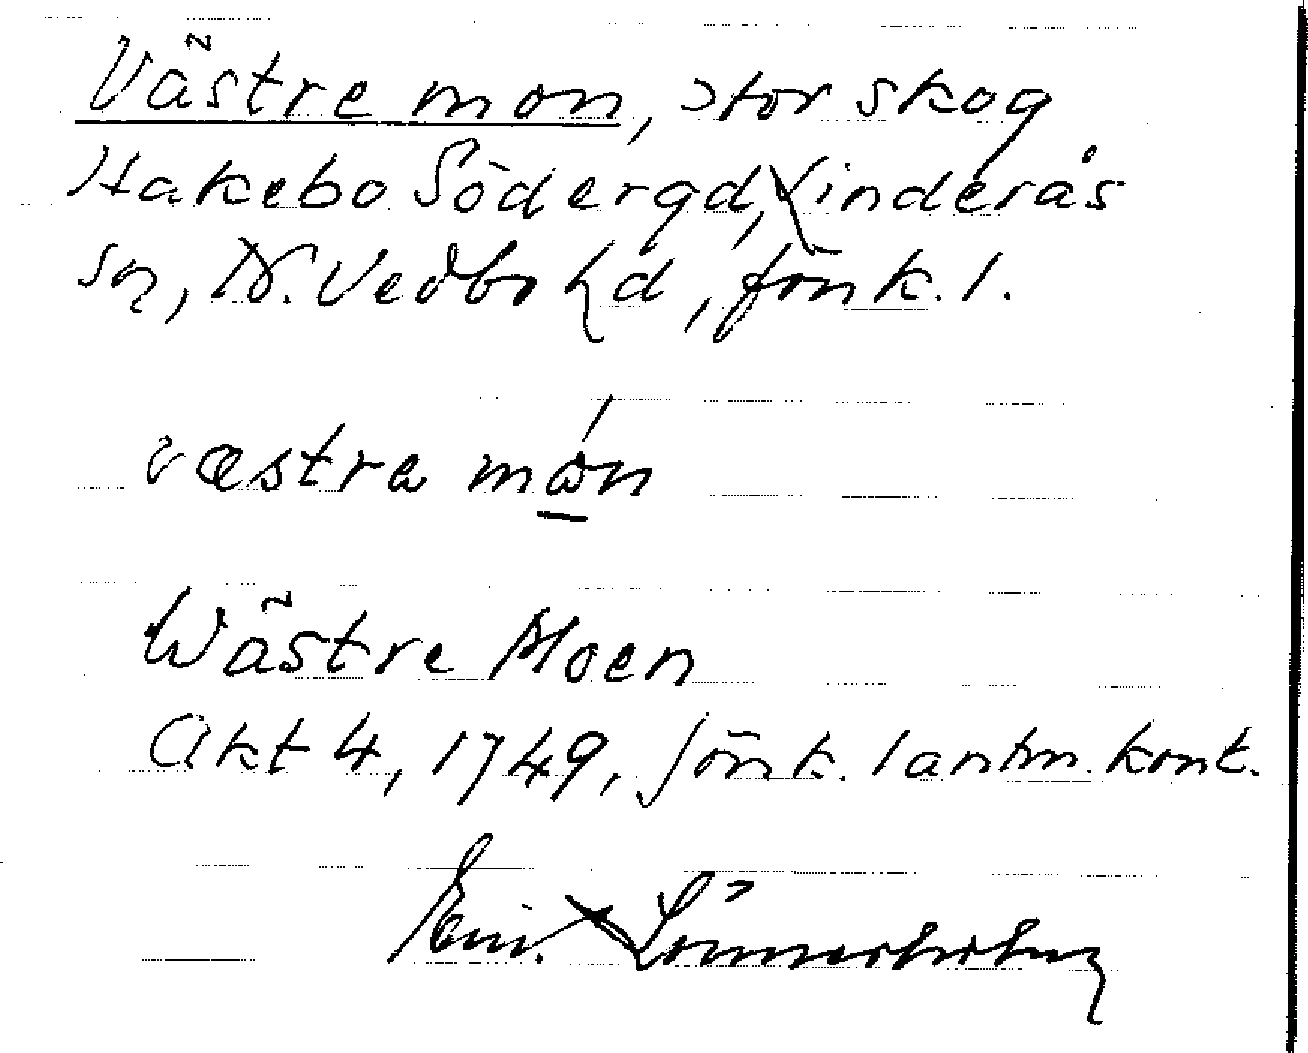 Västre mon, stor skog
Hakebo Södergd, Linderås
sn, N. Vedbo hd, Jönk. l.
væstra món
Wästre Moen
Akt 4, 1749, Jönk. lantm. kont.
Lönnerholm